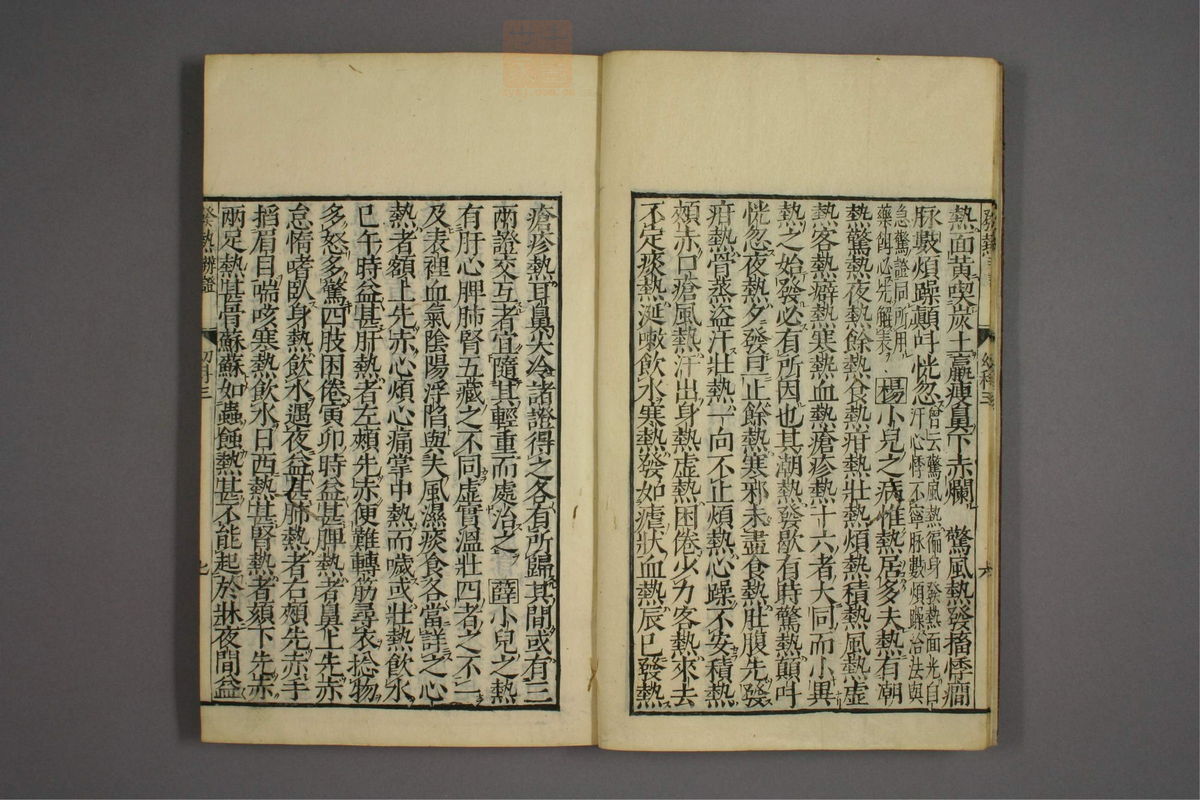 熱面黃喫炭土羸瘦鼻下赤爛　驚風熱發搐悸癎
脉數煩躁顛叫恍忽
曾云驚風熱徧身發熱面光自
汗心悸不寧脉數煩躁治法與
急驚證同所用
藥餌必先解表
楊小兒之病惟熱居多夫熱有潮
熱驚熱夜熱餘熱食熱疳熱壯熱煩熱積熱風熱虛
熱客熱癖熱寒熱血熱瘡疹熱十六者大同而小異
熱之始發必有所因也其潮熱發歇有時驚熱顛叫
恍忽夜熱夕發旦止餘熱寒邪未盡食熱肚腹先發
疳熱骨蒸盗汗壯熱一向不止煩熱心躁不安積熱
頰赤口瘡風熱汗出身熱虛熱困倦少力客熱來去
不定痰熱涎嗽飲水寒熱發如瘧狀血熱辰巳發熱
幼科三
六
瘡疹熱耳鼻尖冷諸證得之各有所歸其間或有三
兩證交互者宜隨其輕重而處治之　薛小兒之熱
有肝心脾肺腎五藏之不同虛實溫壯四者之不一
及表裡血氣陰陽浮陷與夫風濕痰食各當詳之心
熱者額上先赤心煩心痛掌中熱而噦或壯熱飲水
巳午時益甚肝熱者左頰先赤便難轉筋尋衣捻物
多怒多驚四肢困倦寅卯時益甚脾熱者鼻上先赤
怠惰嗜臥身熱飲水遇夜益甚肺熱者右頰先赤手
搯眉目喘咳寒熱飲水日西熱甚腎熱者頦下先赤
兩足熱甚骨蘇蘇如蟲蝕熱甚不能起於牀夜間益
發熱辨證
幼科三
七